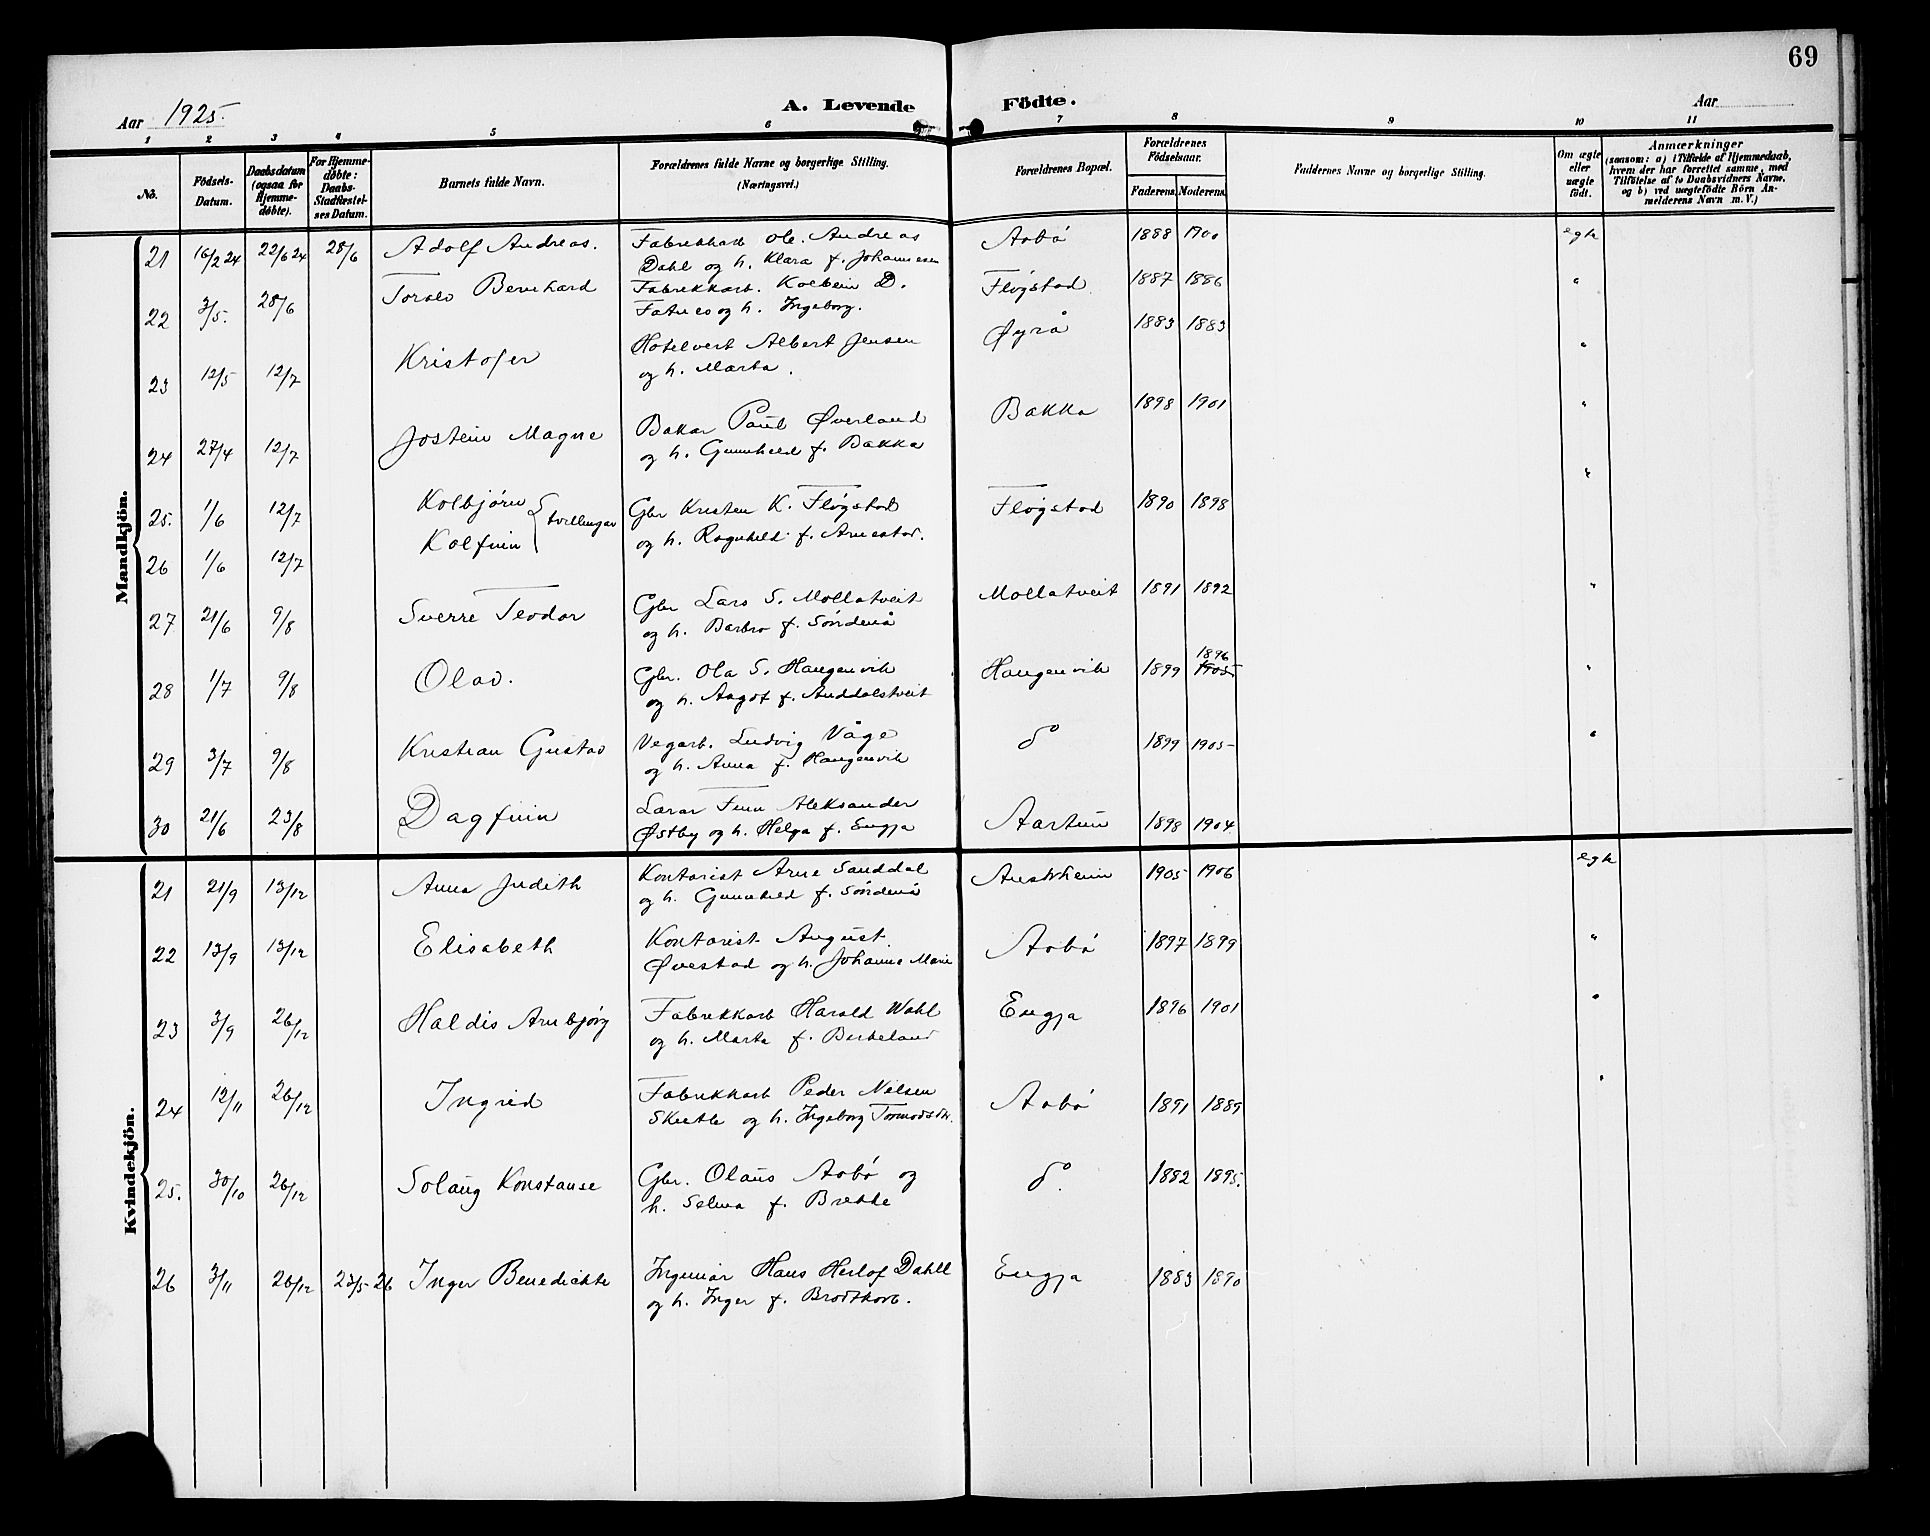 69
Aar 1925.
A. Levende Födte.
Aar
1 2 3 4 5 6 7 8 9 10 11
No.
Födsels-Datum.
Daabsdatum (ogsaa for Hjemme-döbte).
For Hjemme-döbte: Daabs-Stadfæstel-ses Datum.
Barnets fulde Navn.
Forældrenes fulde Navne og borgerlige Stilling.
(Næringsvei.)
Forældrenes Bopæl.
Forældrenes Födselsaar.
Faderens. Moderens.
Faddernes Navne og borgerlige Stilling.
Om ægte eller uægte födt.
Anmærkninger
(saasom: a) i Tilfælde af Hjemmedaab, hvem der har forrettet samme, med Tilföielse af to Daabsvidners Navne, og b) ved uægtefödte Börn Anmelderens Navn m. V.)
Mandkjön.
21 16/2 24 22/6 24 28/6 Adolf Andreas. Fabrikkarb Ole Andreas Aabø 1888 1900 egte
Dahl og h. Klara f. Johannesen
22 3/5. 28/6 Torolv Bernhard Fabrikkarb. Kolbein D. Fløgstad 1887 1886 "
Fatnes og h. Ingeborg.
23 12/5 12/7 Kristofer Hotelvert Albert Jensen Øyrå 1883 1883 "
og h. Marta.
24 27/4 12/7 Jostein Magne Bakar Paul Øverland Bakka 1898 1901 "
og h. Gunnhild f. Bakka
25. 1/6 12/7 Kolbjørn Gbr Kristen K. Fløgstad Fløgstad 1890 1898 "
26 1/6 12/7 Kolfinn tvillingar og h. Ragnhild f. Arnestad.
27 21/6 9/8 Sverre Teodor Gbr Lars S. Mollatveit Mollatveit 1891 1892 "
og h. Barbro f. Søndenå
28 1/7 9/8 Olav. Gbr. Ola S. Haugenvik Haugenvik 1899 1896 1905 "
og h. Aagot f. Anddalstveit
29 3/7 9/8 Kristian Gustav Vegarb. Ludvig Våge do 1899 1905 "
og h. Anna f. Haugenvik
30 21/6 23/8 Dagfinn Lærar Finn Aleksander Aartun 1898 1904
Østby og h. Helga f. Engja
Kvindekjön.
21 21/9 13/12 Anna Judith Kontorist Arne Sanddal Austrheim 1905 1906 egte
og h. Gunnhild f. Søndenå
22 13/9 13/12 Elisabeth Kontorist August Aabø 1897 1899 "
Øvestad og h. Johanne Marie
23 3/9 26/12 Haldis Arnbjørg Fabrikkarb Harald Wahl Engja 1896 1901 "
og h. Marta f. Berkeland
24 12/11 26/12 Ingrid Fabrikkarb Peder Nilsen Aabø 1891 1889 "
og h. Ingeborg
25. 30/10 26/12 Solaug Konstanse Gbr. Olaus Aabø og do 1882 1895.
h. Selma f. Brekke
26 3/11 26/12 23/5 26 Inger Benedickte Ingeniør Hans Herlof Dahll Engja 1883 1890
og h. Inger f. Brodtkorb.